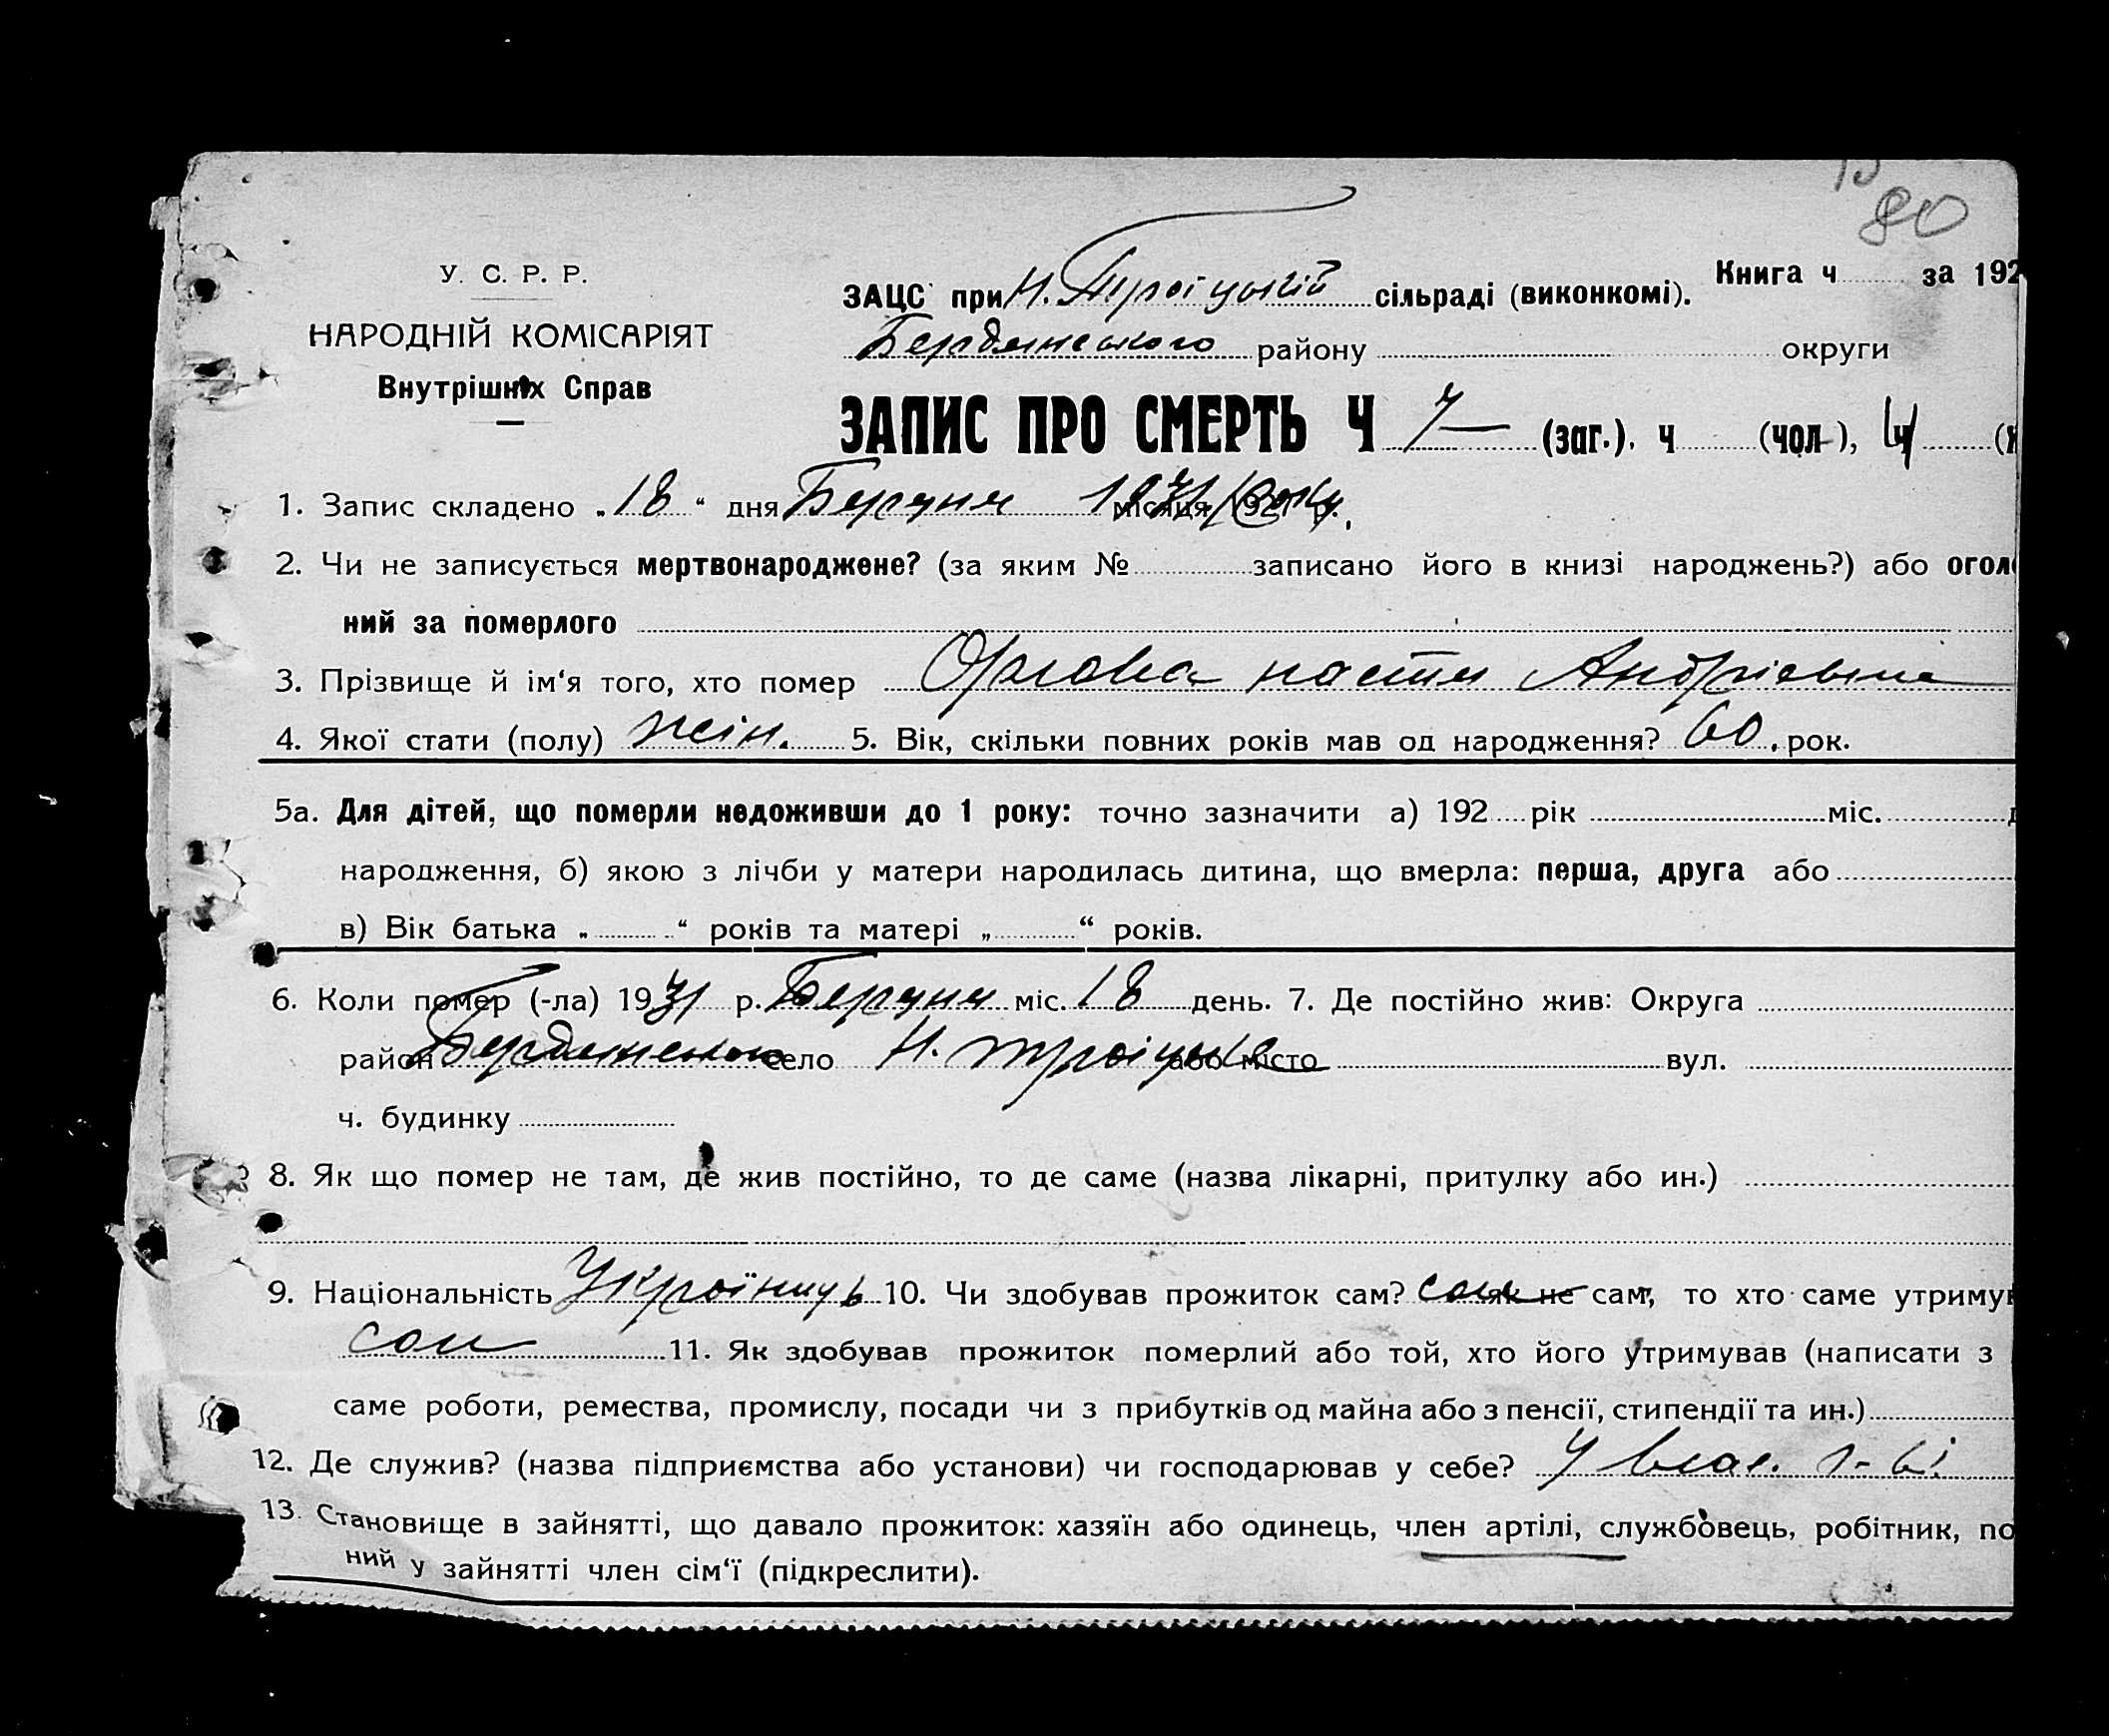 80
У. С. Р. Р.
НАРОДНІЙ КОМІСАРІЯТ
Внутрішніх Справ
Книга ч за 192
ЗАЦС при Н. Троіцькій сільраді (виконкомі).
Бердянського району округи
ЗАПИС ПРО СМЕРТЬ Ч 7 (заг.). ч (чол), ч 4
1. Запис складено „18“ дня Берузня місяця 1931 Року.
2. Чи не записується мертвонароджене? (за яким № записано його в книзі народжень?) або
ний за померлого
3. Прізвище й ім‘я того, хто помер Орлова настя Андрієвна
4. Якої стати (полу) жін. 5. Вік, скільки повних років мав од народження? 60, рок.
5а. Для дітей, що померли недоживши до 1 року: точно зазначити а) 192 рік міс.
народження, б) якою з лічби у матери народилась дитина, що вмерла: перша, друга або
в) Вік батька „ “ років та матері „ “ років.
6. Коли помер (-ла) 1931 р. міс. 18 день. 7. Де постійно жив: Округа
район село Н. троіцьке або місто вул.
ч. будинку
8. Як що помер не там, де жив постійно, то де саме (назва лікарні, притулку або ин.)
9. Національність 10. Чи здобував прожиток сам? сам як не сам, то хто саме
сам 11. Як здобував прожиток померлий або той, хто його утримував (написати з
саме роботи, ремества, промислу, посади чи з прибутків од майна або з пенсії, стипендії та ин.)
12. Де служив? (назва підприємства або установи) чи господарював у себе? У влас.
13. Становище в зайнятті, що давало прожиток: хазяїн або одинець, член артілі, службовець, робітник, по
ний у зайнятті член сім‘ї (підкреслити).